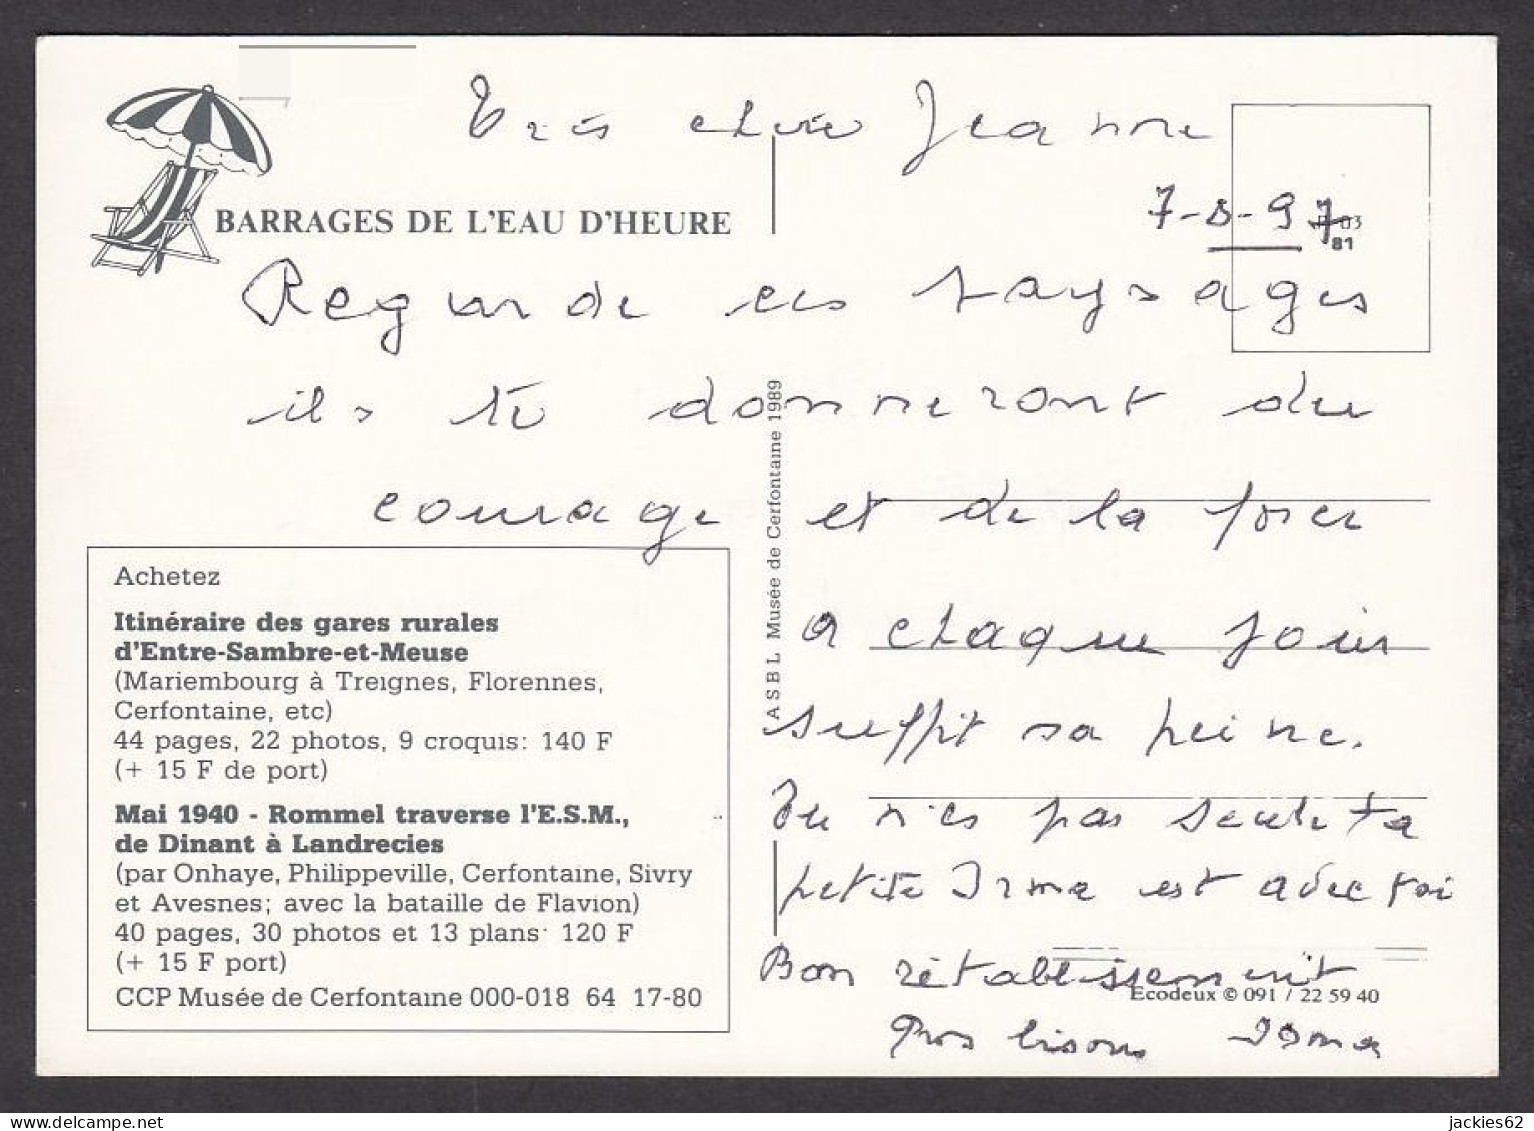 Très chère Jeanne
BARRAGES DE L'EAU D'HEURE
7-8-97
81
Regarde ces paysages
ils te donneront du
courage et de la force
A chaque jour
suffit sa peine.
Tu n'es pas seule ta
petite Irma est avec toi
Bon rétablissement
Gros bisous Irma
Achetez
Itinéraire des gares rurales
d'Entre-Sambre-et-Meuse
(Mariembourg à Treignes, Florennes,
Cerfontaine, etc)
44 pages, 22 photos, 9 croquis: 140 F
(+ 15 F de port)
Mai 1940 - Rommel traverse l'E.S.M.,
de Dinant à Landrecies
(par Onhaye, Philippeville, Cerfontaine, Sivry
et Avesnes; avec la bataille de Flavion)
40 pages, 30 photos et 13 plans: 120 F
(+ 15 F port)
CCP Musée de Cerfontaine 000-018 64 17-80
ASBL Musée de Cerfontaine 1989
Ecodeux © 091 / 22 59 40
jackies62